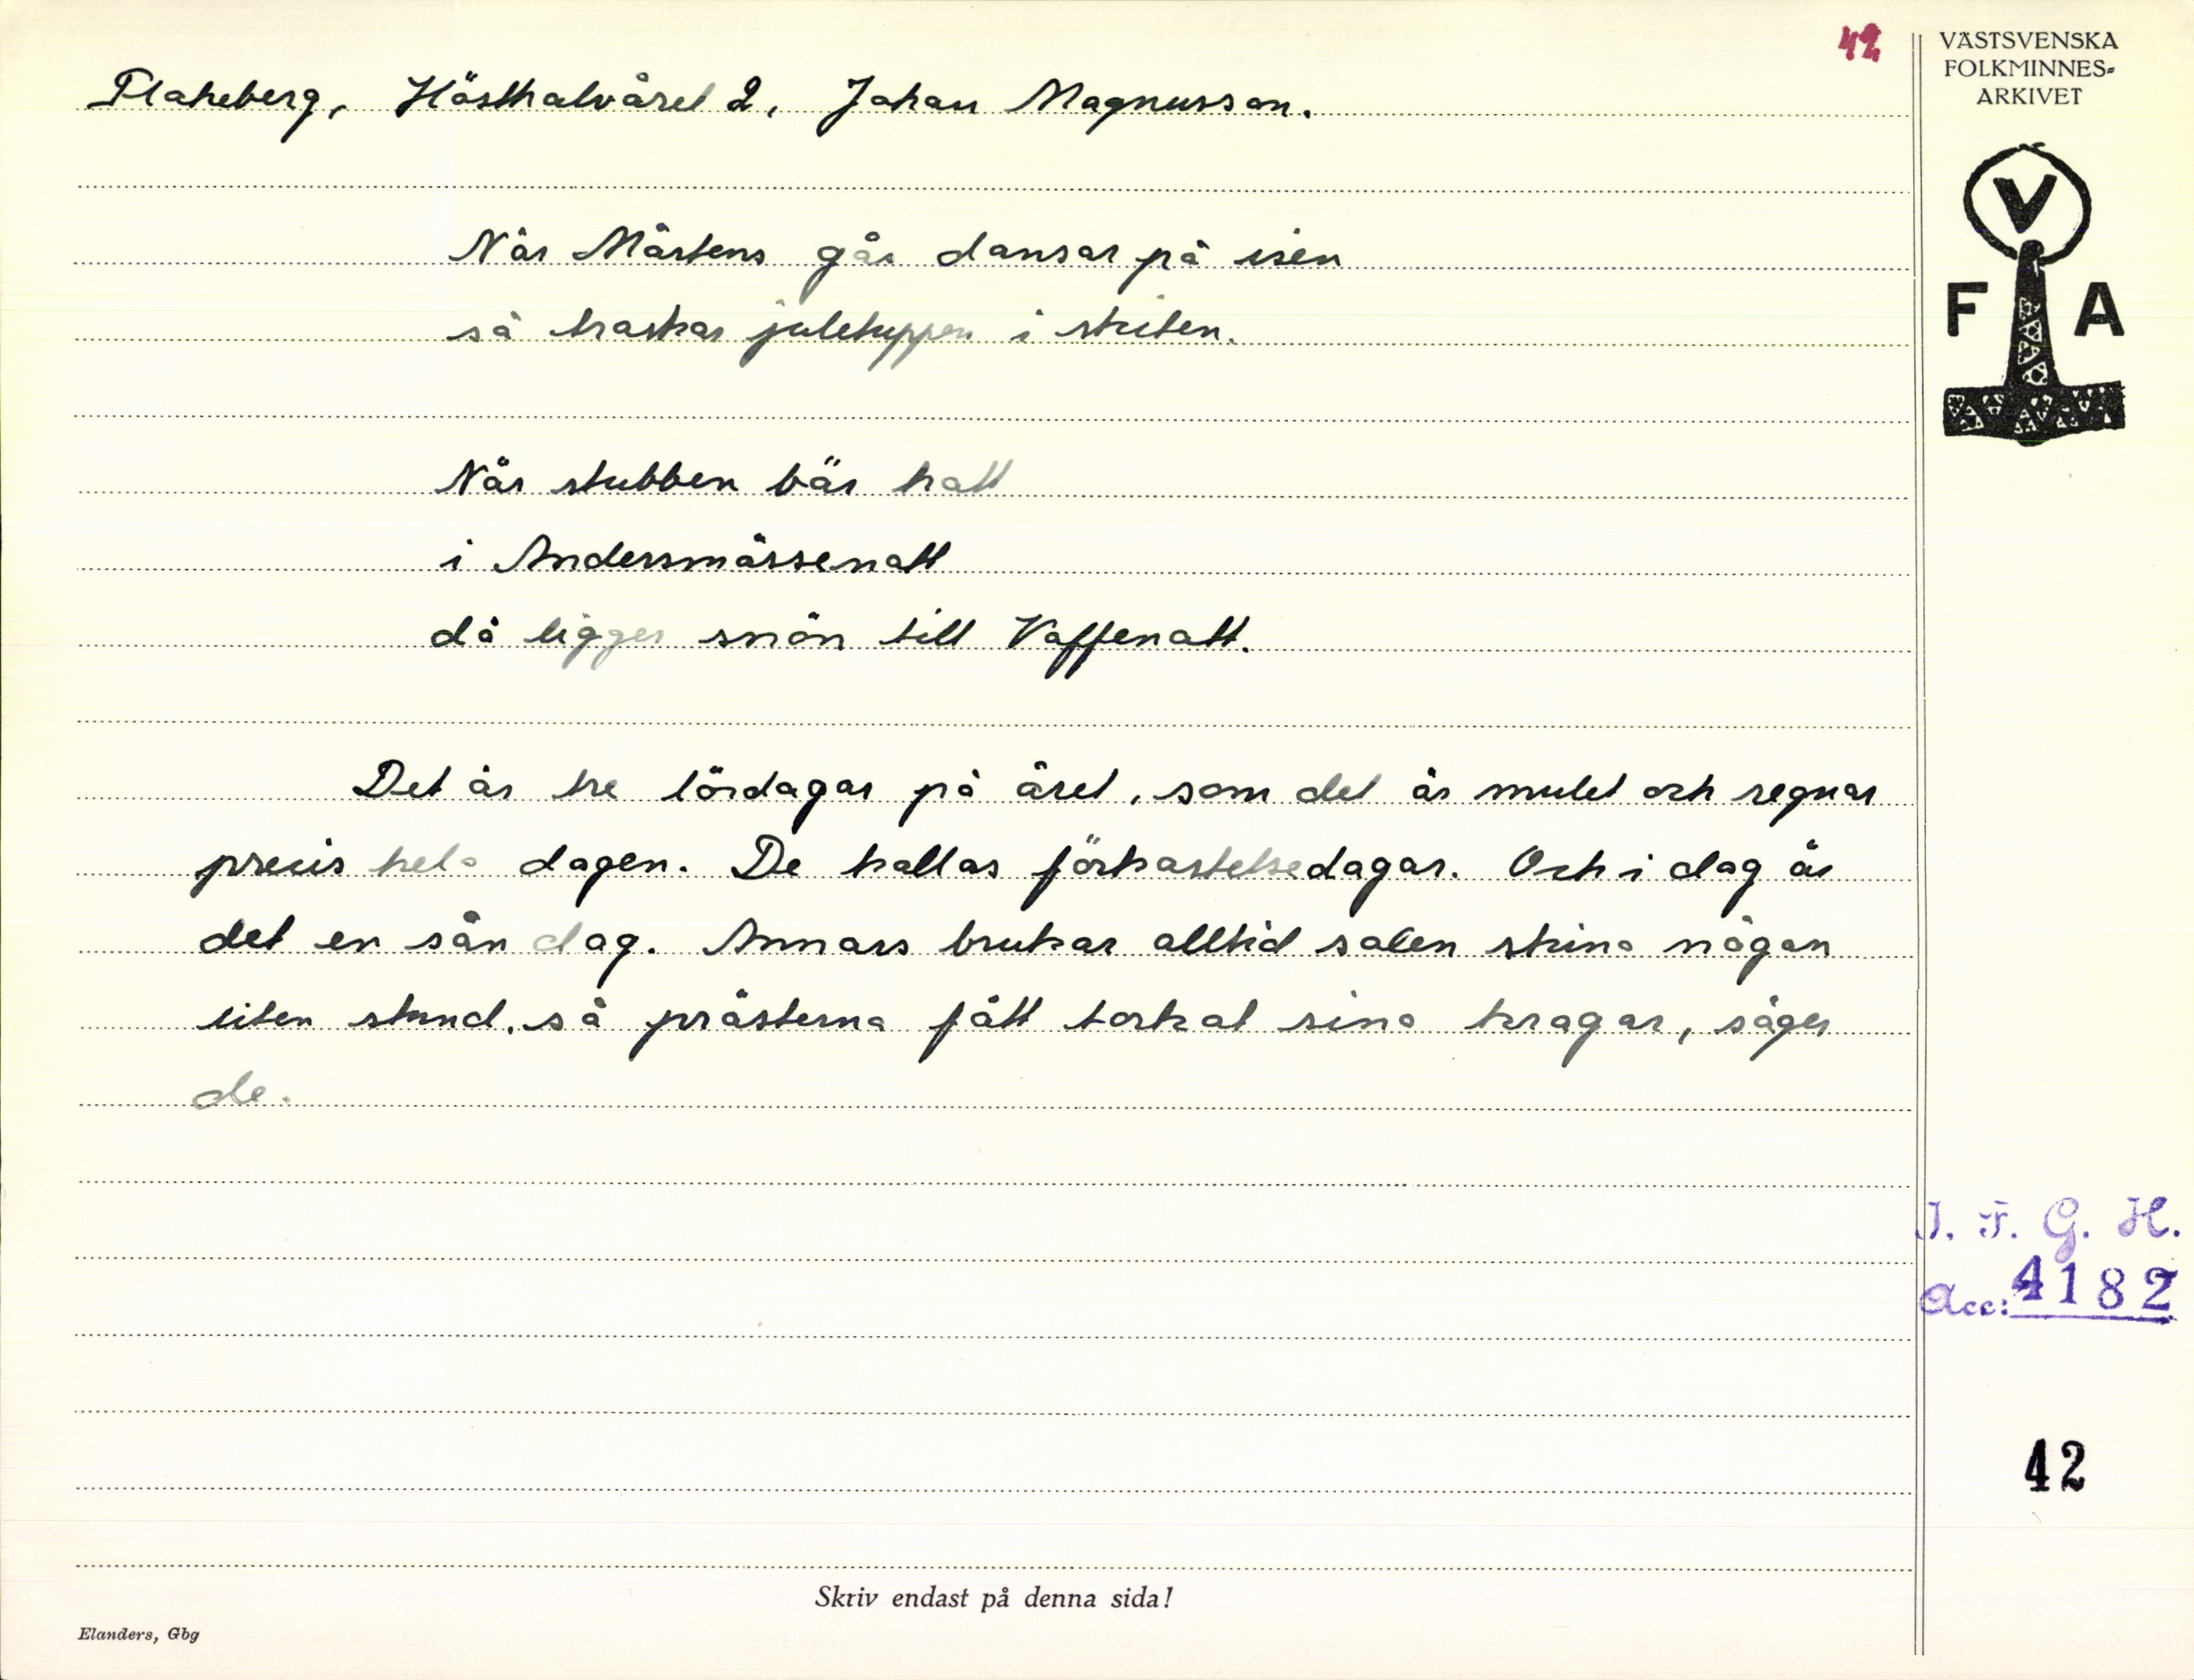 42
VÄSTSVENSKA
FOLKMINNES-
ARKIVET
Flakeberg, Hösthalvåret 2, Johan Magnusson.
V
F A
När Mårtens gås dansar på isen
så traskar juletuppen i skiten.
När stubben bär hatt
i Andersmässenatt
då ligger snön till Vaffenatt.
Det är tre lördagar på året, som det är mulet och regnar
precis hela dagen. De kallas förkastelsedagar. Och i dag är
det en sån dag. Annars brukar alltid solen skina någon
liten stund, så prästerna fått torkat sina kragar, säger
de.
I. F. G. H.
Acc: 4182
42
Skriv endast på denna sida!
Elanders, Gbg